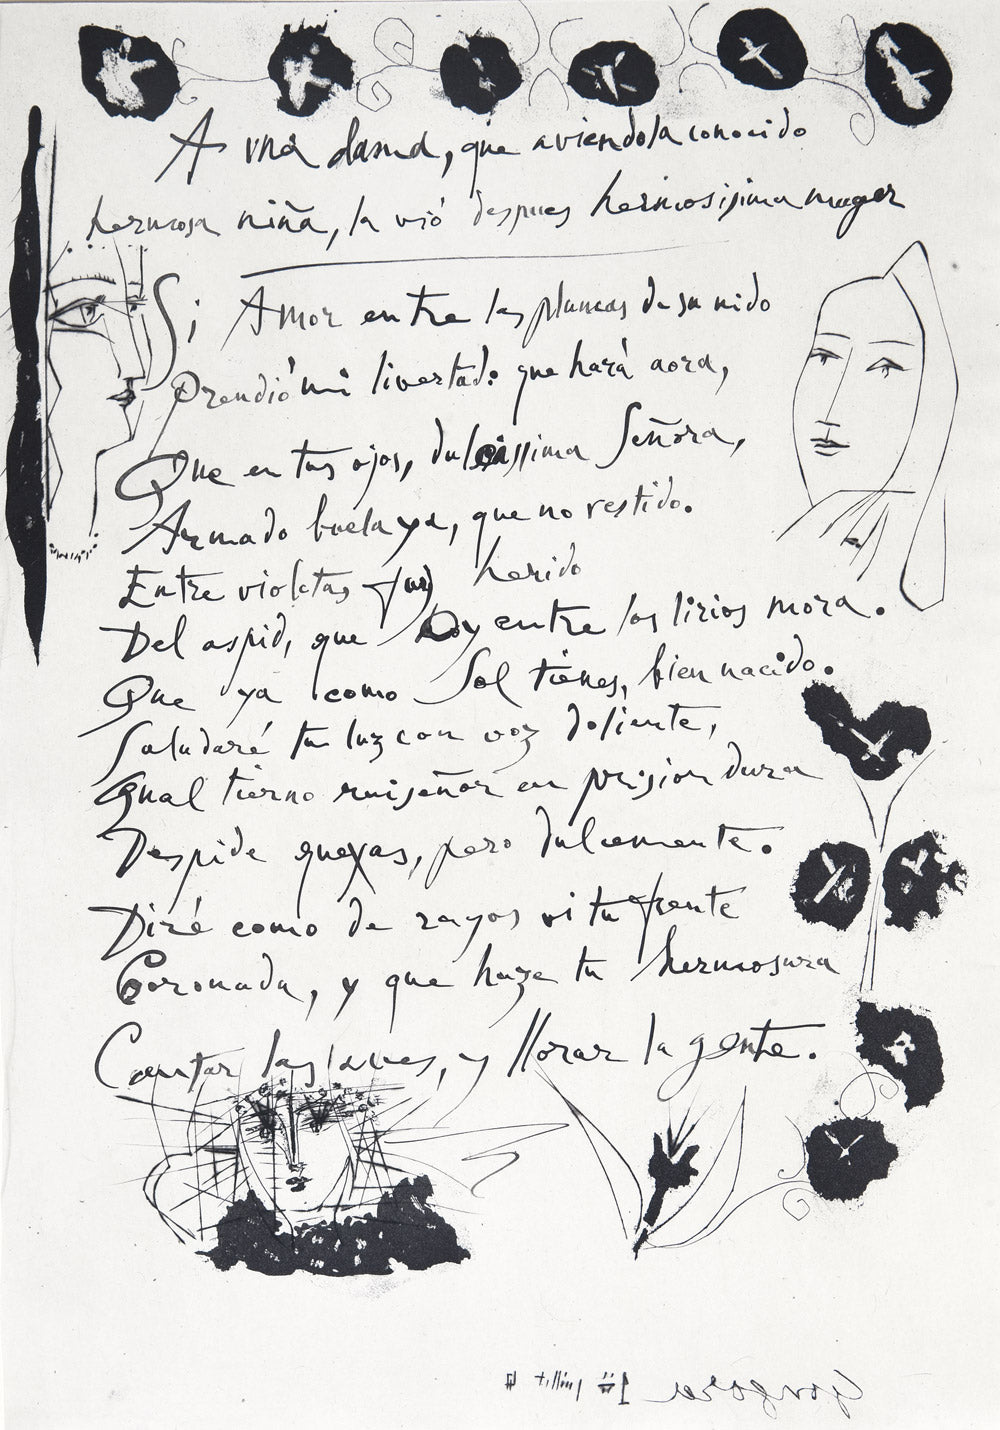 A una dama, que aviendola conocido
hermosa niña, la vió despues hermosisima muger
Si Amor entre las plumas de su nido
Prendió mi livertad: que hará aora,
Que en tus ojos, dulcissima Señora,
Armado buela ya, que no vestido.
Entre violetas fui herido
Del aspid, que oy entre los lirios mora.
Que ya como Sol tienes, bien nacido.
Saludaré tu luz con voz doliente,
Qual tierno ruiseñor en prision dura
Despide quexas, pero dulcemente.
Diré como de rayos vi tu frente
Coronada, y que haze tu hermosura
Cantar las aves, y llorar la gente.
Gongora 1er juillet 4